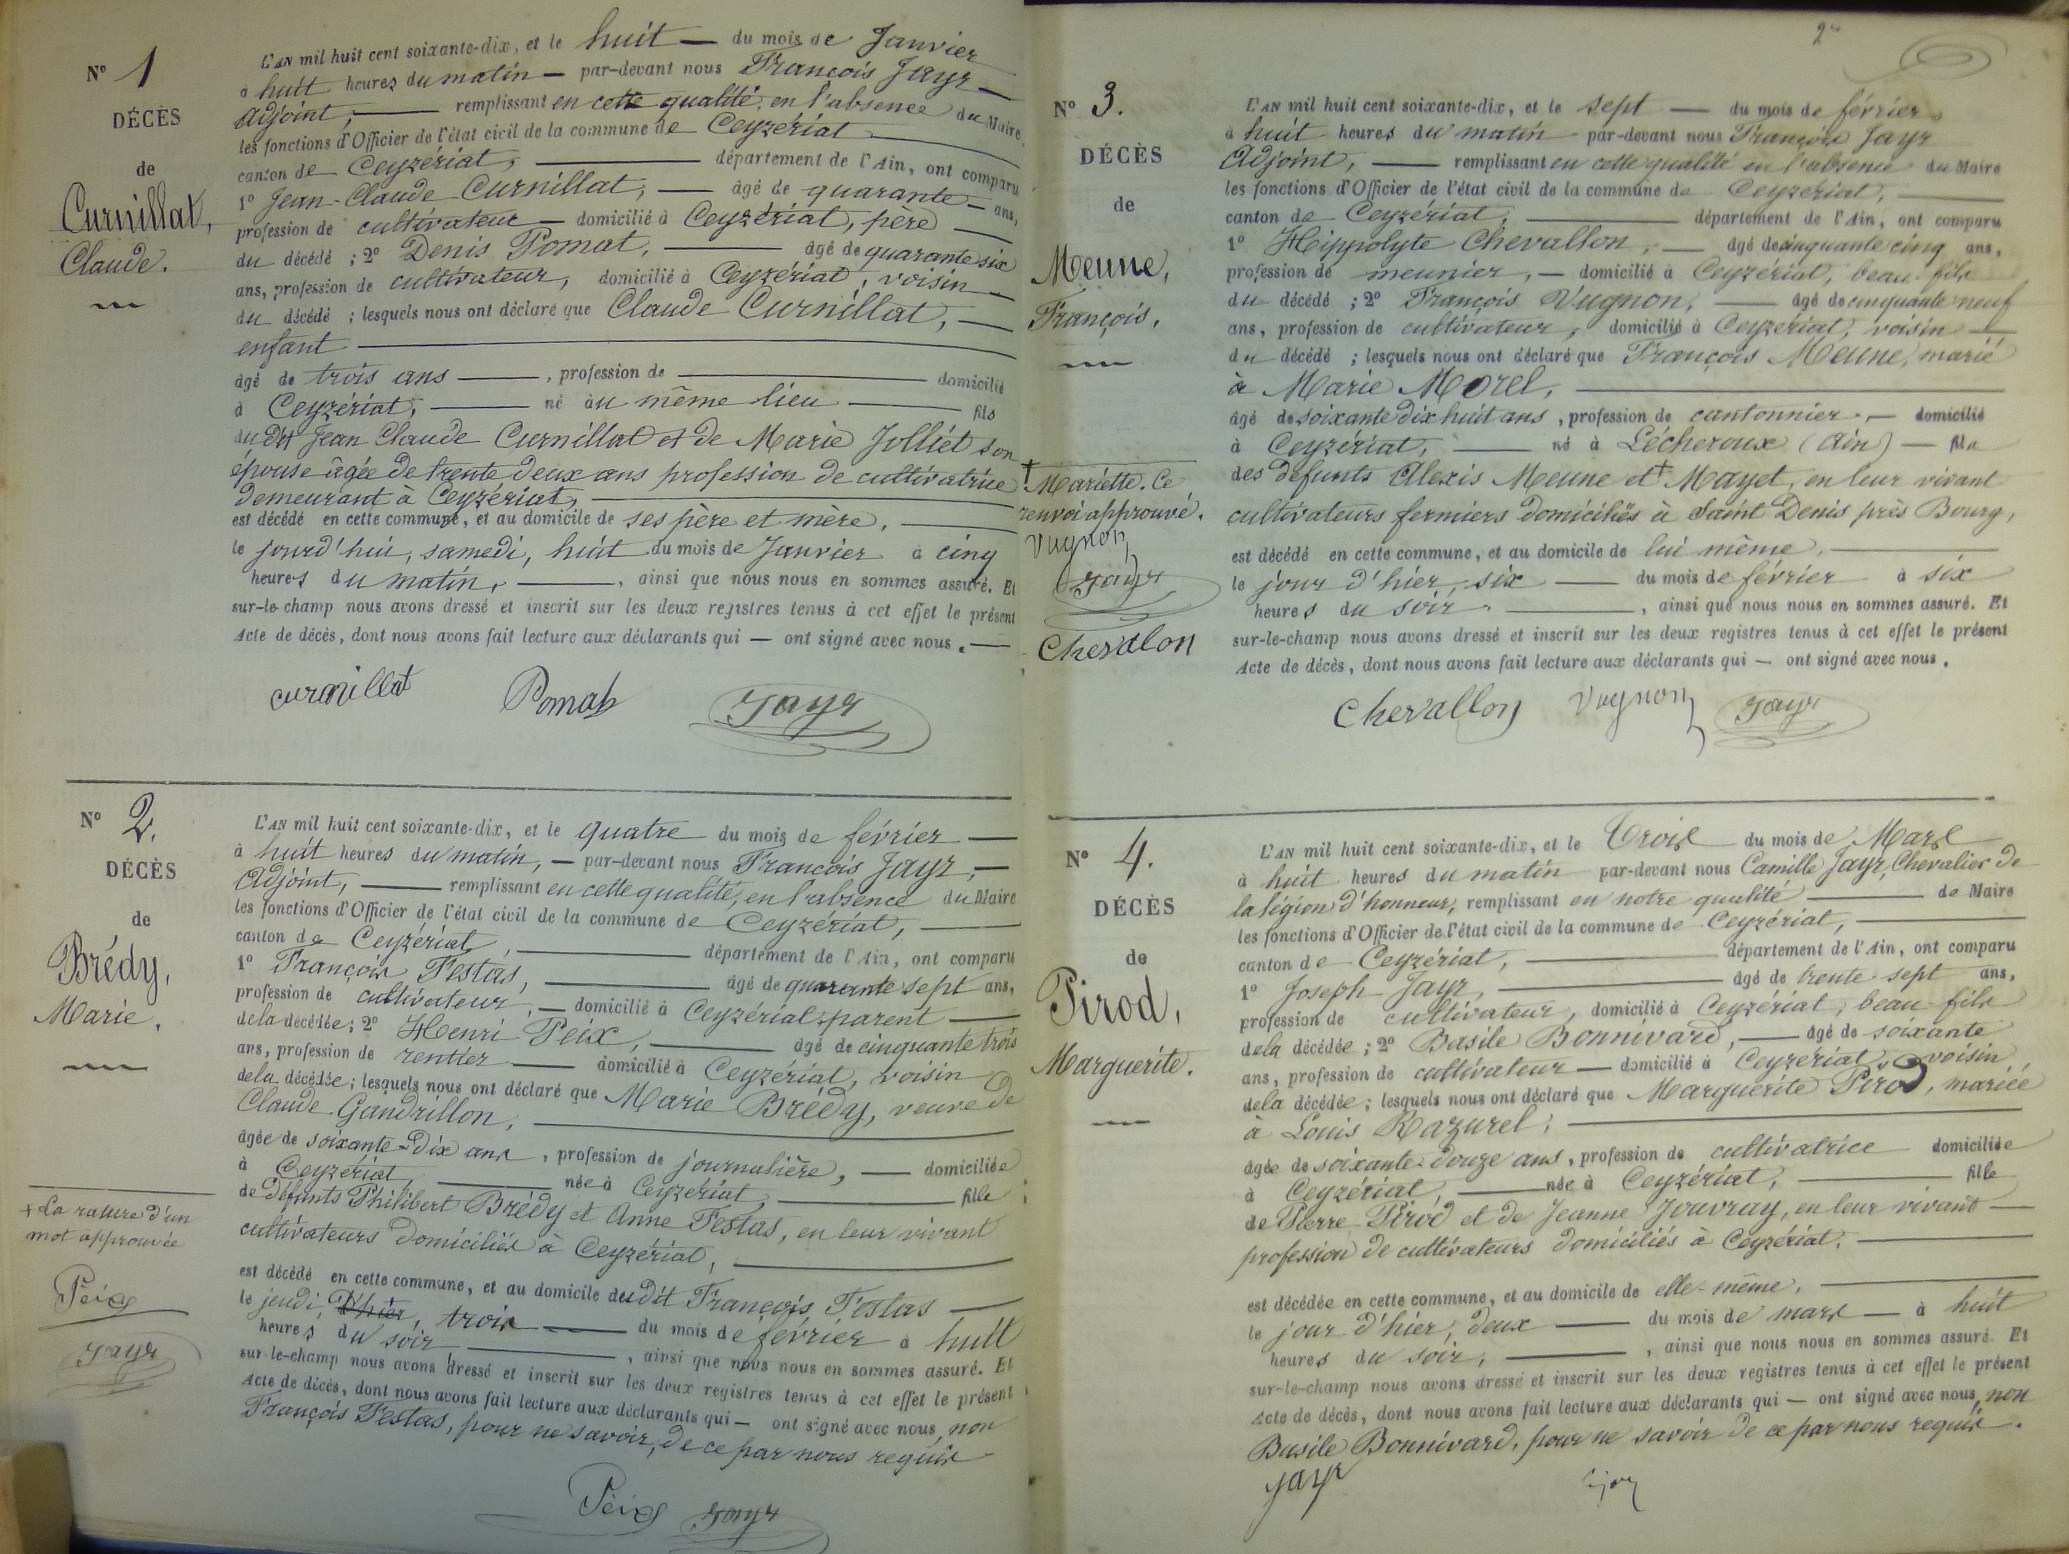 N° 1
DÉCÈS
de
Curnillat,
Claude.
L'AN mil huit cent soixante-dix, et le huit — du mois de Janvier
à huit heures du matin — par-devant nous François Jayr —
Adjoint, — remplissant en cette qualité, en l'absence du Maire
les fonctions d'Officier de l'état civil de la commune de Ceyzériat
canton de Ceyzériat, — département de l'Ain, ont comparu
1° Jean-Claude Curnillat, — âgé de quarante — ans,
profession de cultivateur — domicilié à Ceyzériat, père —
du décédé ; 2° Denis Pomat, — âgé de quarante six
ans, profession de cultivateur, domicilié à Ceyzériat, voisin —
du décédé ; lesquels nous ont déclaré que Claude Curnillat, —
enfant —
âgé de trois ans — , profession de — domicilié
à Ceyzériat, — né au même lieu — fils
du dit Jean Claude Curnillat et de Marie Jolliet son
épouse âgée de trente deux ans profession de cultivatrice
demeurant à Ceyzériat, —
est décédé en cette commune, et au domicile de ses père et mère. —
le jourd'hui, samedi, huit du mois de Janvier à cinq
heures du matin, — , ainsi que nous nous en sommes assuré. Et
sur-le-champ nous avons dressé et inscrit sur les deux registres tenus à cet effet le présent
Acte de décès, dont nous avons fait lecture aux déclarants qui — ont signé avec nous. —
curnillat Pomat Jayr
N° 2.
DÉCÈS
de
Brédy,
Marie.
+ La rature d'un
mot approuvée
Peix
Jayr
L'AN mil huit cent soixante-dix, et le quatre du mois de février —
à huit heures du matin, — par-devant nous François Jayr, —
Adjoint, — remplissant en cette qualité, en l'absence du Maire
les fonctions d'Officier de l'état civil de la commune de Ceyzériat, —
canton de Ceyzériat, — département de l'Ain, ont comparu
1° François Festas, — âgé de quarante sept ans,
profession de cultivateur, — domicilié à Ceyzériat, parent —
de la décédée ; 2° Henri Peix, — âgé de cinquante trois
ans, profession de rentier — domicilié à Ceyzériat, voisin
de la décédée ; lesquels nous ont déclaré que Marie Brédy, veuve de
Claude Gandrillon, —
âgée de soixante-dix ans , profession de journalière, — domiciliée
à Ceyzériat, — née à Ceyzériat — fille
de défunts Philibert Brédy et Anne Festas, en leur vivant
cultivateurs domiciliés à Ceyzériat, —
est décédé en cette commune, et au domicile du dit François Festas —
le jeudi, d'hier, trois — du mois de février à huit
heures du soir — , ainsi que nous nous en sommes assuré. Et
sur-le-champ nous avons dressé et inscrit sur les deux registres tenus à cet effet le présent
Acte de décès, dont nous avons fait lecture aux déclarants qui — ont signé avec nous, non
François Festas, pour ne savoir, de ce par nous requis
Peix Jayr
2
N° 3.
DÉCÈS
de
Meune,
François,
+ Mariette. Ce
renvoi approuvé.
Vugnon
Jayr
Chevallon
L'AN mil huit cent soixante-dix, et le sept — du mois de février
à huit heures du matin par-devant nous François Jayr
Adjoint, — remplissant en cette qualité en l'absence du Maire
les fonctions d'Officier de l'état civil de la commune de Ceyzériat, —
canton de Ceyzériat, — département de l'Ain, ont comparu
1° Hippolyte Chevallon, — âgé de cinquante cinq ans,
profession de meunier, — domicilié à Ceyzériat, beau-fils
du décédé ; 2° François Vugnon, — âgé de cinquante neuf
ans, profession de cultivateur, domicilié à Ceyzériat, voisin —
du décédé ; lesquels nous ont déclaré que François Meune, marié
à Marie Morel, —
âgé de soixante dix huit ans , profession de cantonnier — domicilié
à Ceyzériat, — né à Lécheroux (Ain) — fils
des défunts Alexis Meune et + Mayet, en leur vivant
cultivateurs fermiers domiciliés à Saint Denis près Bourg,
est décédé en cette commune, et au domicile de lui même, —
le jour d'hier, six — du mois de février à six
heures du soir. — , ainsi que nous nous en sommes assuré. Et
sur-le-champ nous avons dressé et inscrit sur les deux registres tenus à cet effet le présent
Acte de décès, dont nous avons fait lecture aux déclarants qui — ont signé avec nous.
Chevallon Vugnon Jayr
N° 4.
DÉCÈS
de
Pirod,
Marguerite.
L'AN mil huit cent soixante-dix, et le Trois du mois de Mars
à huit heures du matin par-devant nous Camille Jayr, Chevalier de
la légion d'honneur, remplissant en notre qualité — de Maire
les fonctions d'Officier de l'état civil de la commune de Ceyzériat, —
canton de Ceyzériat, — département de l'Ain, ont comparu
1° Joseph Jayr, — âgé de trente sept ans,
profession de cultivateur, domicilié à Ceyzériat, beau-fils
de la décédée ; 2° Basile Bonnivard, — âgé de soixante
ans, profession de cultivateur — domicilié à Ceyzériat, voisin
de la décédée ; lesquels nous ont déclaré que Marguerite Pirod, mariée
à Louis Razurel, —
âgée de soixante-douze ans , profession de cultivatrice domiciliée
à Ceyzériat, — née à Ceyzériat, — fille
de Pierre Pirod et de Jeanne Jouvray, en leur vivant —
profession de cultivateurs domiciliés à Ceyzériat, —
est décédée en cette commune, et au domicile de elle-même, —
le jour d'hier, deux — du mois de mars — à huit
heures du soir, — , ainsi que nous nous en sommes assuré. Et
sur-le-champ nous avons dressé et inscrit sur les deux registres tenus à cet effet le présent
Acte de décès, dont nous avons fait lecture aux déclarants qui — ont signé avec nous, non
Basile Bonnivard, pour ne savoir de ce par nous requis.
Jayr